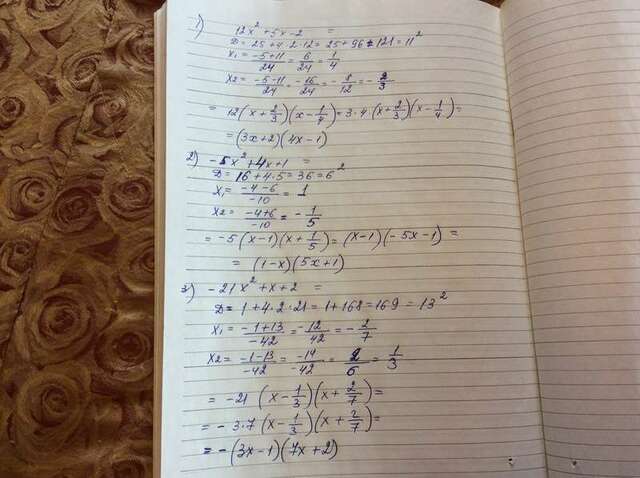 1) 12x² + 5x - 2 =
D = 25 + 4·2·12 = 25 + 96 = 121 = 11²
x₁ = (-5+11)/24 = 6/24 = 1/4
x₂ = (-5-11)/24 = -16/24 = -8/12 = -2/3
= 12(x + 2/3)(x - 1/4) = 3·4·(x + 2/3)(x - 1/4) =
= (3x+2)(4x-1)
2) -5x² + 4x + 1 =
D = 16 + 4·5 = 36 = 6²
x₁ = (-4-6)/-10 = 1
x₂ = (-4+6)/-10 = -1/5
= -5(x-1)(x + 1/5) = (x-1)(-5x-1) =
= (1-x)(5x+1)
3) -21x² + x + 2 =
D = 1 + 4·2·21 = 1 + 168 = 169 = 13²
x₁ = (-1+13)/-42 = -12/42 = -2/7
x₂ = (-1-13)/-42 = -14/-42 = 2/6 = 1/3
= -21(x - 1/3)(x + 2/7) =
= -3·7(x - 1/3)(x + 2/7) =
= -(3x-1)(7x+2)